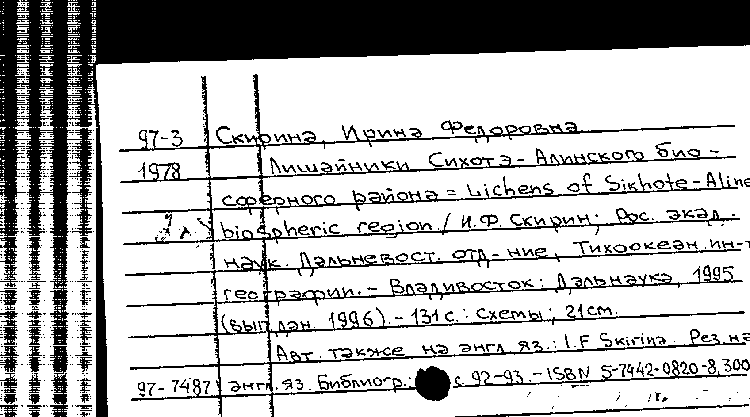 97-3 Скирина, Ирина Федоровна
1978 Лишайники Сихотэ-Алинского био-
сферного района = Lichens of Sikhote-Aline
biospheric region / И.Ф. Скирин; Рос. акад.
наук. Дальневост. отд-ние, Тихоокеан. ин-т
географии. - Владивосток: Дальнаука, 1995
(вып. дан. 1996). - 131 с.: схемы; 21 см.
Авт. также на англ. яз.: I.F Skirina. Рез. на
97-7487 англ. яз. Библиогр.: с 92-93. - ISBN 5-7442-0820-8, 300